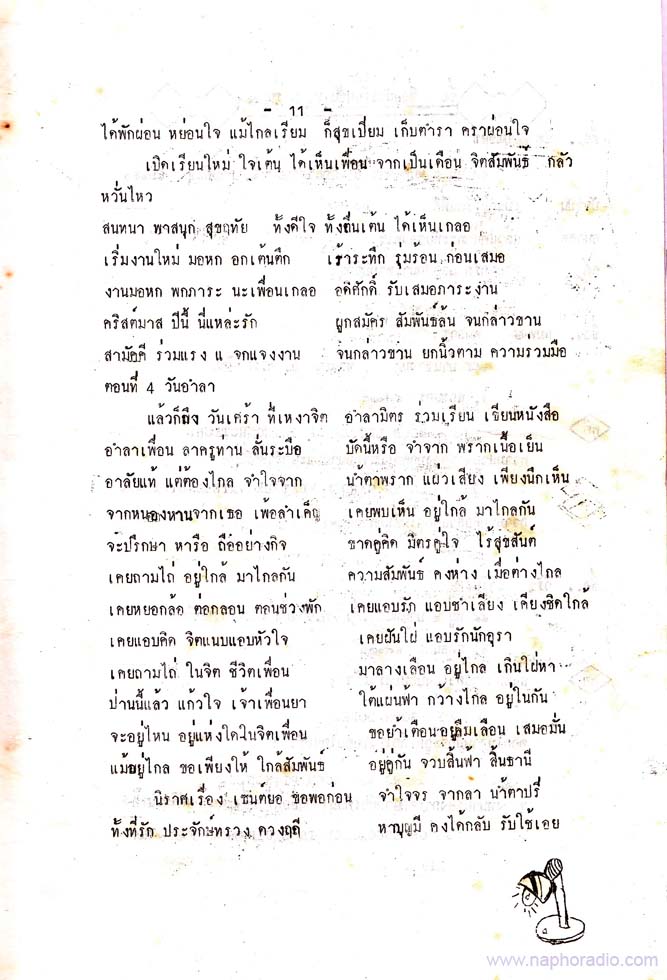 - 11 -
ได้พักผ่อน หย่อนใจ แม้ไกลเรียม ก็สุขเปี่ยม เก็บตำรา คราผ่อนใจ
เปิดเรียนใหม่ ใจเต้น ได้เห็นเพื่อน จากเป็นเดือน จิตสัมพันธ์ กลัว
หวั่นไหว
สนทนา พาสนุก สุขฤทัย ทั้งดีใจ ทั้งตื่นเต้น ได้เห็นเกลอ
เริ่มงานใหม่ มอหก อกเต้นตึก เร้าระทึก รุ่มร้อน ก่อนเสมอ
งานมอหก พกภาระ นะเพื่อนเกลอ อดิศักดิ์ รับเสมอภาระงาน
คริสต์มาส ปีนี้ นี่แหล่ะรัก ผูกสมัคร สัมพันธ์ล้น จนกล่าวขาน
สามัคคี ร่วมแรง แ จกแจงงาน จนกล่าวขาน ยกนิ้วตาม ความร่วมมือ
ตอนที่ 4 วันอำลา
แล้วก็ถึง วันเศร้า ที่เหงาจิต อำลามิตร ร่วมเรียน เขียนหนังสือ
อำลาเพื่อน ลาครูท่าน ลั่นระบือ บัดนี้หรือ จำจาก พรากเนื้อเย็น
อาลัยแท้ แต่ต้องไกล จำใจจาก น้ำตาพราก แผ่วเสียง เพียงนึกเห็น
จากหนองหานจากเธอ เพ้อลำเค็ญ เคยพบเห็น อยู่ใกล้ มาไกลกัน
จะปรึกษา หารือ ถืออย่างกิจ ขาดคู่คิด มิตรคู่ใจ ไร้สุขสันต์
เคยถามไถ่ อยู่ใกล้ มาไกลกัน ความสัมพันธ์ คงห่าง เมื่อต่างไกล
เคยหยอกล้อ ต่อกลอน ตอนช่วงพัก เคยแอบรัก แอบชำเลียง เคียงชิดใกล้
เคยแอบคิด จิตแนบแอบหัวใจ เคยฝันใฝ่ แอบรักนักอุรา
เคยถามไถ่ ในจิต ชีวิตเพื่อน มาลางเลือน อยู่ไกล เกินใฝ่หา
ป่านนี้แล้ว แก้วใจ เจ้าเพื่อนยา ใต้แผ่นฟ้า กว้างไกล อยู่ในกัน
จะอยู่ไหน อยู่แห่งใดในจิตเพื่อน ขอย้ำเตือนอย่าลืมเลือน เสมอมั่น
แม้อยู่ไกล ขอเพียงให้ ใกล้สัมพันธ์ อยู่คู่กัน จวบสิ้นฟ้า สิ้นธานี
นิราศเรื่อง เซนต์ยอ ขอพอก่อน จำใจจร จากลา น้ำตาปรี่
ทั้งที่รัก ประจักษ์ทรวง ดวงฤดี หาบุญมี คงได้กลับ รับใช้เอย
www.naphoradio.com